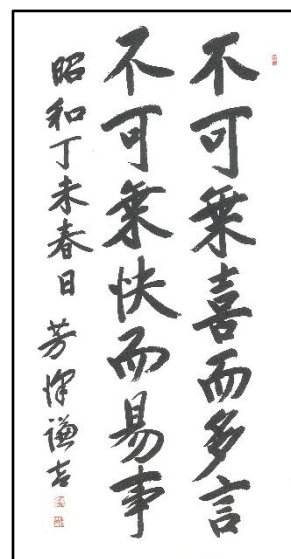 不可乗喜而多言
不可乗快而易事
昭和丁未春日 芳澤謙吉